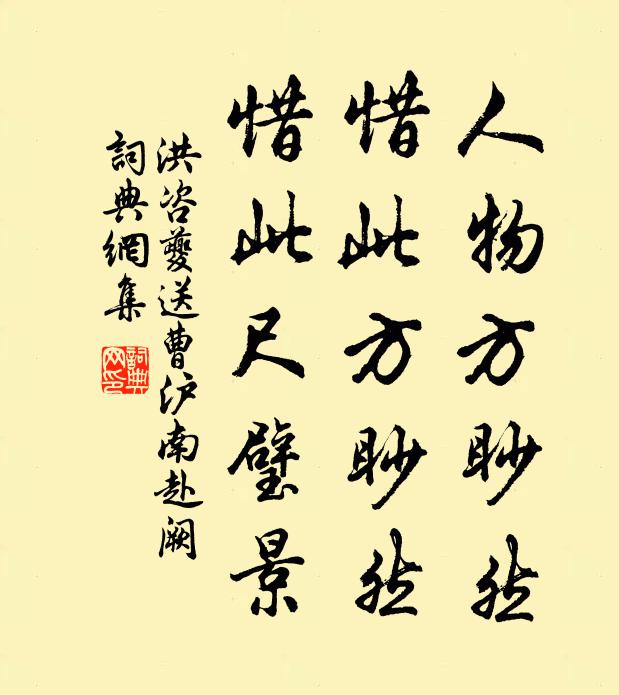 人物方眇然
惜此方眇然
惜此尺璧景
洪咨夔送曹泸南赴阙
詞典網集
詞典网印